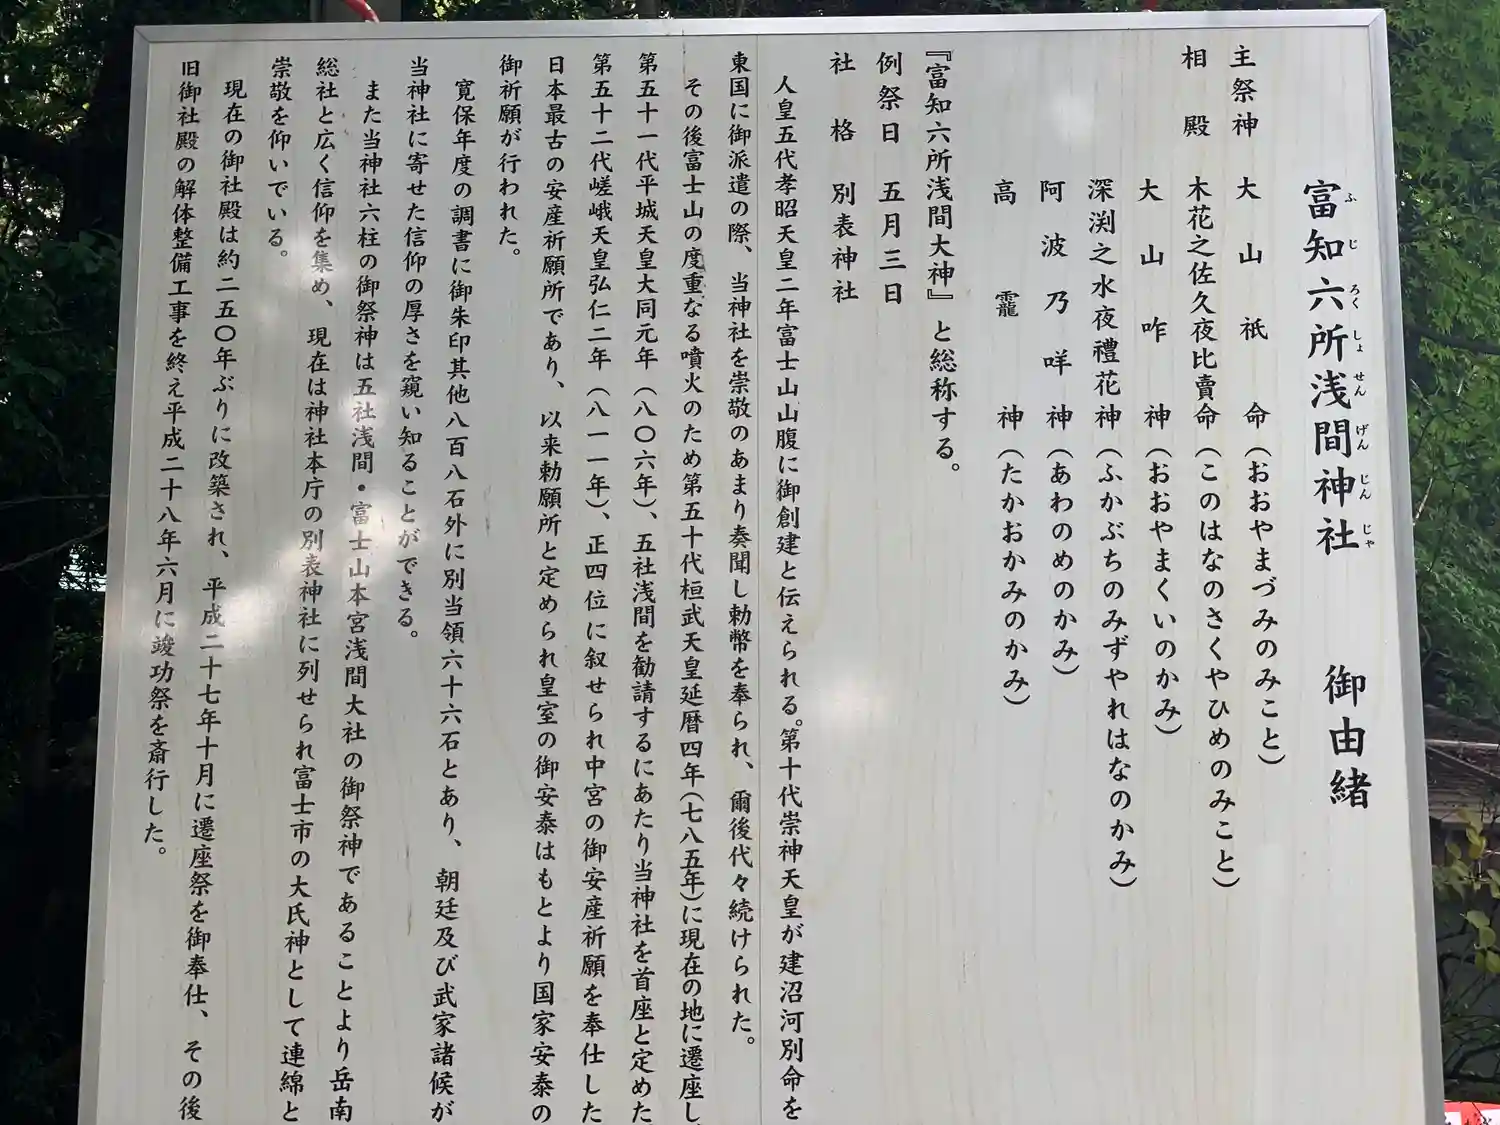 富知六所浅間神社　御由緒
ふじろくしょせんげんじんじゃ
主祭神　大山祇命（おおやまづみのみこと）
相殿　木花之佐久夜比賣命（このはなのさくやひめのみこと）
大山咋神（おおやまくいのかみ）
深渕之水夜禮花神（ふかぶちのみずやれはなのかみ）
阿波乃咩神（あわのめのかみ）
高龗神（たかおかみのかみ）
『富知六所浅間大神』と総称する。
例祭日　五月三日
社格　別表神社
人皇五代孝昭天皇二年富士山山腹に御創建と伝えられる。第十代崇神天皇が建沼河別命を
東国に御派遣の際、当神社を崇敬のあまり奏聞し勅幣を奉られ、爾後代々続けられた。
その後富士山の度重なる噴火のため第五十代桓武天皇延暦四年（七八五年）に現在の地に遷座し、
第五十一代平城天皇大同元年（八〇六年）、五社浅間を勧請するにあたり当神社を首座と定めた
第五十二代嵯峨天皇弘仁二年（八一一年）、正四位に叙せられ中宮の御安産祈願を奉仕した
日本最古の安産祈願所であり、以来勅願所と定められ皇室の御安泰はもとより国家安泰の
御祈願が行われた。
寛保年度の調書に御朱印其他八百八石外に別当領六十六石とあり、朝廷及び武家諸候が
当神社に寄せた信仰の厚さを窺い知ることができる。
また当神社六柱の御祭神は五社浅間・富士山本宮浅間大社の御祭神であることより岳南
総社と広く信仰を集め、現在は神社本庁の別表神社に列せられ富士市の大氏神として連綿と
崇敬を仰いでいる。
現在の御社殿は約二五〇年ぶりに改築され、平成二十七年十月に遷座祭を御奉仕、その後
旧御社殿の解体整備工事を終え平成二十八年六月に竣功祭を斎行した。